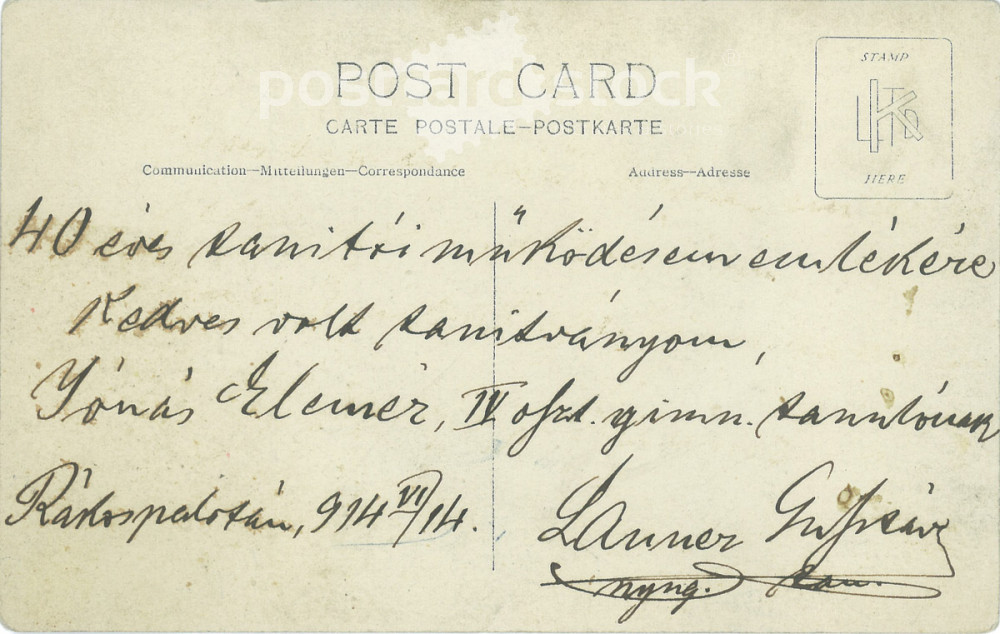 postcardstock
POST CARD
CARTE POSTALE—POSTKARTE
STAMP
HERE
Communication—Mitteilungen—Correspondance
Address—Adresse
40 éves tanitói működésem emlékére
Kedves volt tanitványom,
Jónás Elemér, IV oszt. gimn. tanulónak
Rákospalotán, 914 VI/14.
Gusztáv
nyug. tan.